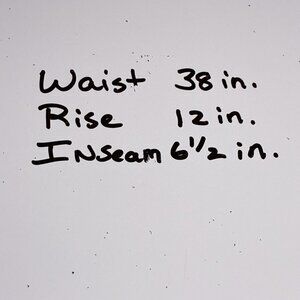 Waist 38 in.
Rise 12 in.
INseam 6 1/2 in.